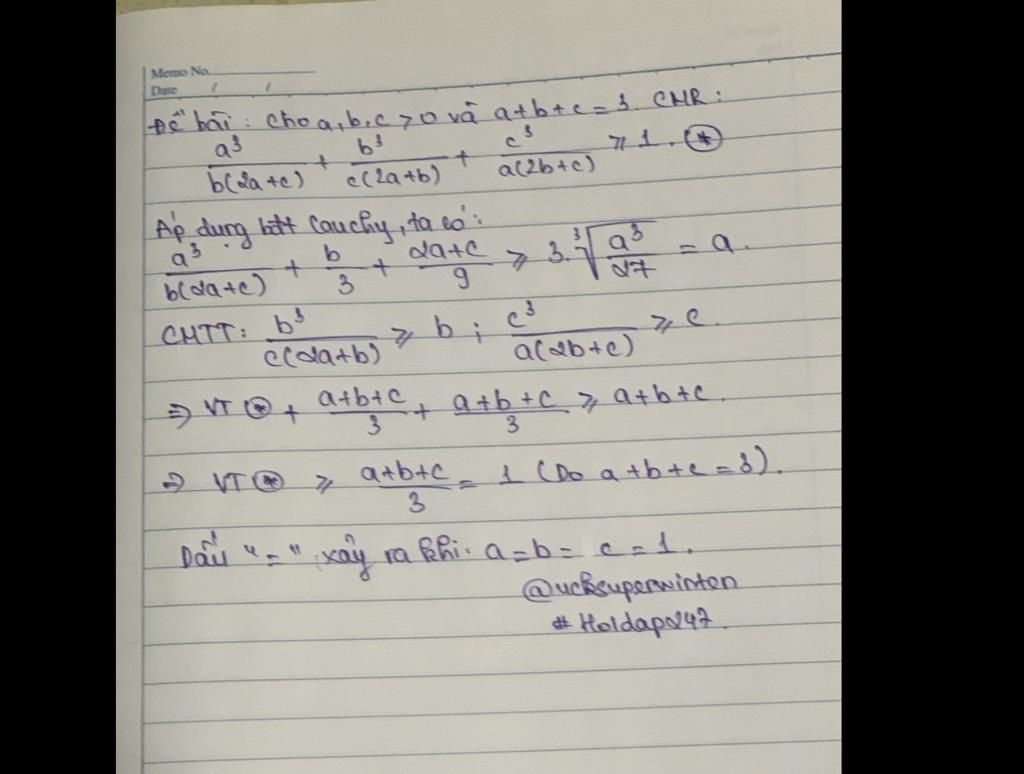 Memo No.
Date / /
Đề bài: Cho a, b, c > 0 và a + b + c = 3. CMR:
a³/b(2a+c) + b³/c(2a+b) + c³/a(2b+c) ≥ 1. (*)
Áp dụng bđt Cauchy, ta có:
a³/b(2a+c) + b/3 + 2a+c/9 ≥ 3.∛(a³/27) = a.
CMTT: b³/c(2a+b) ≥ b ; c³/a(2b+c) ≥ c.
⇒ VT (*) + a+b+c/3 + a+b+c/3 ≥ a+b+c.
⇒ VT (*) ≥ a+b+c/3 = 1 (Do a+b+c = 3).
Dấu "=" xảy ra khi: a = b = c = 1.
@ucksuperwinten
# Hoidap247.